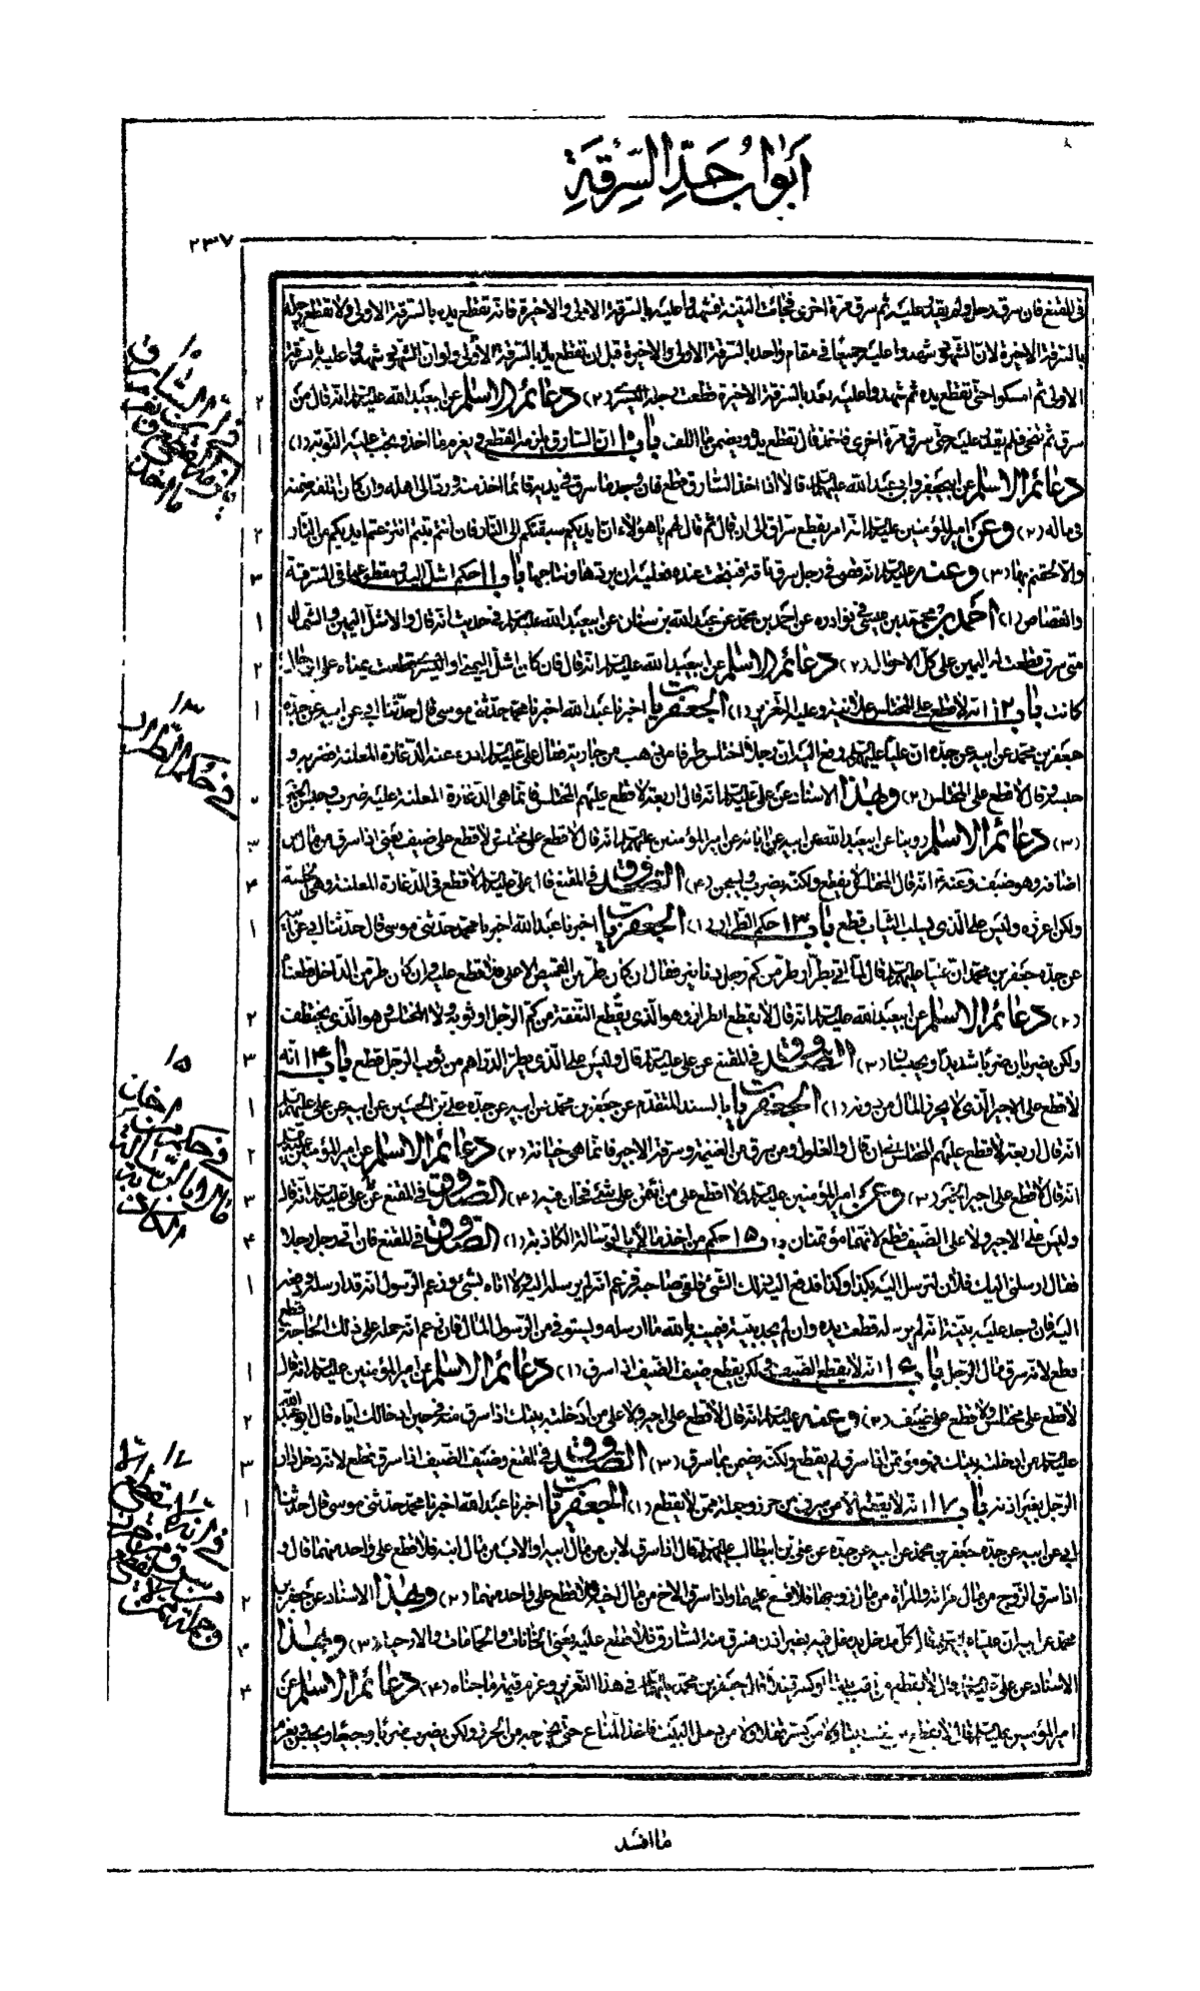 أبواب حد السرقة
٢٣٧
في المقنع فان سرق رجل ولم يقدر عليه ثم سرق مرة اخرى فجائت البينة فشهدوا عليه بالسرقة الاولى والاخيرة فانه تقطع يده بالسرقة الاولى ولا تقطع رجله
بالسرقة الاخيرة لان الشهود شهدوا عليه جميعا في مقام واحد بالسرقة الاولى والاخيرة قبل ان تقطع يده بالسرقة الأولى ولو ان الشهود شهدوا عليه بالسرقة
الاولى ثم امسكوا حتى تقطع يده ثم شهدوا عليه بعد بالسرقة الاخيرة قطعت رجله اليسرى (٢) دعائم الاسلام عن ابيعبد الله عليه السلام انه قال من
سرق ثم نجى فلم يقدر عليه حتى سرق مرة اخرى فاخذ قال تقطع يده ويضمن ما اتلف باب ١٠ ان السارق يلزمه القطع ويغرم ما اخذ ويجب عليه التوبة (١)
دعائم الاسلام عن ابيجعفر وابي عبد الله عليهما السلام قالا اذا اخذ السارق قطع فان وجد ما سرق في يديه قائما اخذ منه ورد الى اهله وان كان اتلفه ضمنه
في ماله (٢) وعن امير المؤمنين عليه السلام انه امر بقطع سراق الى ان قال ثم قال لهم يا هؤلاء ان ايديكم سبقتكم الى النار فان انتم تبتم انتزعتم ايديكم من النار
والا لحقتم بها (٣) وعنه عليه السلام انه قضى في رجل سرق ناقة فنتجت عنده فعليه ان يردها ونتاجها باب ١١ حكم اشل اليد ومقطوعها في السرقة
والقصاص (١) احمد بن محمد بن عيسى في نوادره عن احمد بن محمد عن عبد الله بن سنان عن ابيعبد الله عليه السلام في حديث انه قال والاشل اليمين والشمال
متى سرق قطعت له اليمين على كل الاحوال (٢) دعائم الاسلام عن ابيعبد الله عليه السلام انه قال فان كان اشل اليمنى او اليسرى قطعت يمناه على اي حال
كانت باب ١٢ انه لا قطع على المختلس علانية وعليه التعزير (١) الجعفريات اخبرنا عبد الله اخبرنا محمد حدثني موسى قال حدثنا ابي عن ابيه عن جده
جعفر بن محمد عن ابيه عن جده ان عليا عليه السلام رفع اليه ان رجلا اختلس ظرفا من ذهب من جارية فقال علي عليه السلام ادرء عنه الدغارة المعلنة فضربه و
حبسه وقال لا قطع على المختلس (٢) وبهذا الاسناد عن علي عليه السلام انه قال اربعة لا قطع عليهم المختلس فانما هي الدغارة المعلنة وعليه ضرب وحبس الخبر
(٣) دعائم الاسلام روينا عن ابيعبد الله عن ابيه عن ابائه عن امير المؤمنين عليهم السلام انه قال لا قطع على مختلس لا قطع على ضيف يعني اذا سرق من مال من
اضافه وهو ضيف وعنه انه قال المختلس لا يقطع ولكنه يضرب ويسجن (٤) الصدوق في المقنع قال علي عليه السلام لا قطع في الدغارة المعلنة وهي الخلسة
ولكن اعزره وليس على الذي يسلب الثياب قطع باب ١٣ حكم الطرار (١) الجعفريات اخبرنا عبد الله اخبرنا محمد حدثني موسى قال حدثنا ابي عن ابيه
عن جده جعفر بن محمد ان عليا عليه السلام قال لما اتي بطرار طر من كم رجل دنانير فقال ان كان طر من القميص الاعلى فلا قطع عليه وان كان طر من الداخل قطعناه
(٢) دعائم الاسلام عن ابيعبد الله عليه السلام انه قال لا يقطع الطرار وهو الذي يقطع النفقة من كم الرجل او ثوبه ولا المختلس وهو الذي يختطف
ولكن يضربان ضربا شديدا ويحبسان (٣) الصدوق في المقنع عن علي عليه السلام قال وليس على الذي يطر الدراهم من ثوب الرجل قطع باب ١٤ انه
لا قطع على الاجير الذي لا يحرز المال من دونه (١) الجعفريات بالسند المتقدم عن جعفر بن محمد عن ابيه عن جده علي بن الحسين عن ابيه عن علي عليهم السلام
انه قال اربعة لا قطع عليهم المختلس الى ان قال والغلول ومن سرق من الغنيمة وسرقة الاجير فانما هي خيانة (٢) دعائم الاسلام عن امير المؤمنين عليه السلام
انه قال لا قطع على اجير الخبر (٣) وعن امير المؤمنين عليه السلام لا اقطع على من ائتمن على شئ فخان فيه (٤) الصدوق في المقنع عن علي عليه السلام انه قال
وليس على الاجير ولا على الضيف قطع لانهما مؤتمنان باب ١٥ حكم من اخذ مالا بالرسالة الكاذبة (١) الصدوق في المقنع فان اتى رجل رجلا
فقال ارسلني اليك فلان لترسل اليه بكذا وكذا فدفع اليه ذلك الشئ فلقي صاحبه فزعم انه لم يرسله اليه ولا اتاه بشئ وزعم الرسول انه قد ارسله ودفعه
اليه فان وجد عليه بينة انه لم يرسله قطعت يده وان لم يجد بينة فيمينه بالله ما ارسله ويستوفي من الرسول المال فان زعم انه حمله على ذلك الحاجة قطع
قطع لانه سرق مال الرجل باب ١٦ انه لا يقطع الضيف ولكن يقطع ضيف الضيف اذا سرق (١) دعائم الاسلام عن امير المؤمنين عليه السلام انه قال
لا قطع على مختلس ولا قطع على ضيف (٢) وعنه عليه السلام انه قال لا قطع على اجير ولا على من ادخلته بيتك اذا سرق منه في حين ادخالك اياه قال ابو عبد الله
عليه السلام من ادخلته بيتك فهو مؤتمن اذا سرق لم يقطع ولكنه يضمن ما سرق (٣) الصدوق في المقنع وضيف الضيف اذا سرق قطع لانه دخل دار
الرجل بغير اذنه باب ١٧ انه لا يقطع الا من سرق من حرز وجملة ممن لا يقطع (١) الجعفريات اخبرنا عبد الله اخبرنا محمد حدثني موسى قال حدثنا
ابي عن ابيه عن جده جعفر بن محمد عن ابيه عن جده عن علي بن ابيطالب عليهم السلام قال اذا سرق الابن من مال ابيه والاب من مال ابنه فلا قطع على واحد منهما قال و
اذا سرق الزوج من مال امرأته والمرأة من مال زوجها فلا قطع عليهما واذا سرق الاخ من مال اخيه فلا قطع على واحد منهما (٢) وبهذا الاسناد عن جعفر بن
محمد عن ابيه ان عليا عليه السلام قال كل مدخل يدخل فيه بغير اذن فسرق منه السارق فلا قطع عليه يعني الخانات والحمامات والارحية (٣) وبهذا
الاسناد عن علي قال لا يقطع من نقب بيتا او كسر قفلا قال جعفر بن محمد عليهما السلام في هذا التعزير وغرم قيمة ما جناه (٤) دعائم الاسلام عن
امير المؤمنين عليه السلام قال لا يقطع من نقب بيتا ولا من كسر قفلا ولا من دخل البيت فاخذ المتاع حتى يخرجه من الحرز ولكن يضرب ضربا وجيعا ويحبس ويغرم
ما افسد
١٣
في حكم الطرار
١٥
في حكم من اخذ
مالا بالرسالة
الكاذبة
١٧